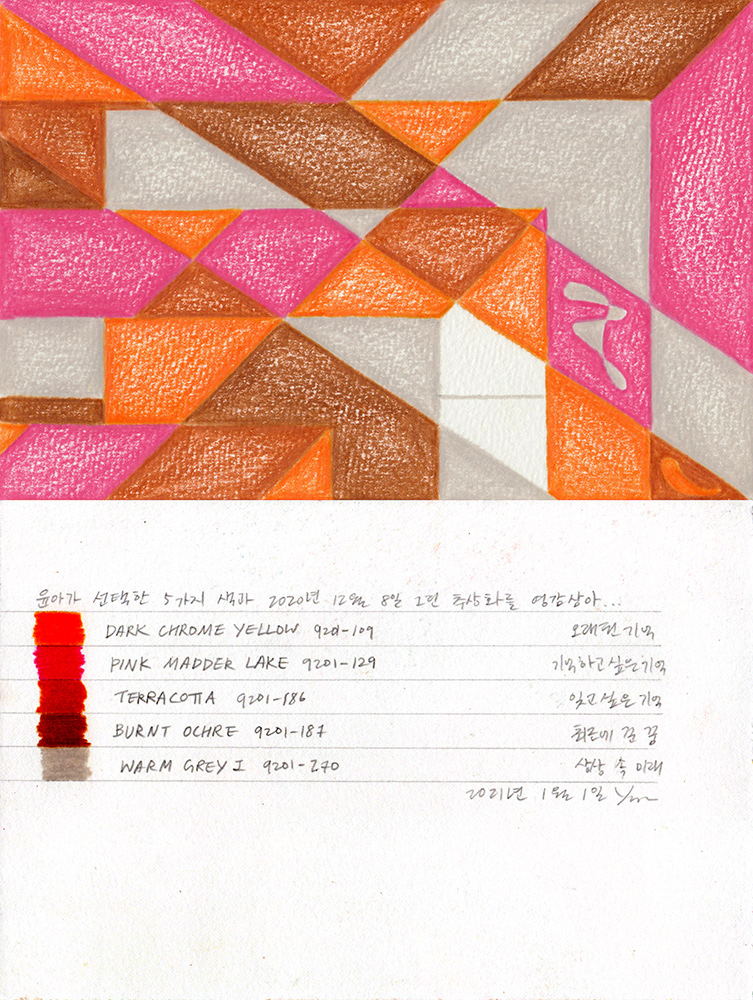 윤아가 선택한 5가지 색과 2020년 12월 8일 그린 추상화를 영감삼아...
DARK CHROME YELLOW 9201-109 오래된 기억
PINK MADDER LAKE 9201-129 기억하고 싶은 기억
TERRACOTTA 9201-186 잊고 싶은 기억
BURNT OCHRE 9201-187 최근에 꾼 꿈
WARM GREY I 9201-270 상상 속 미래
2021년 1월 1일